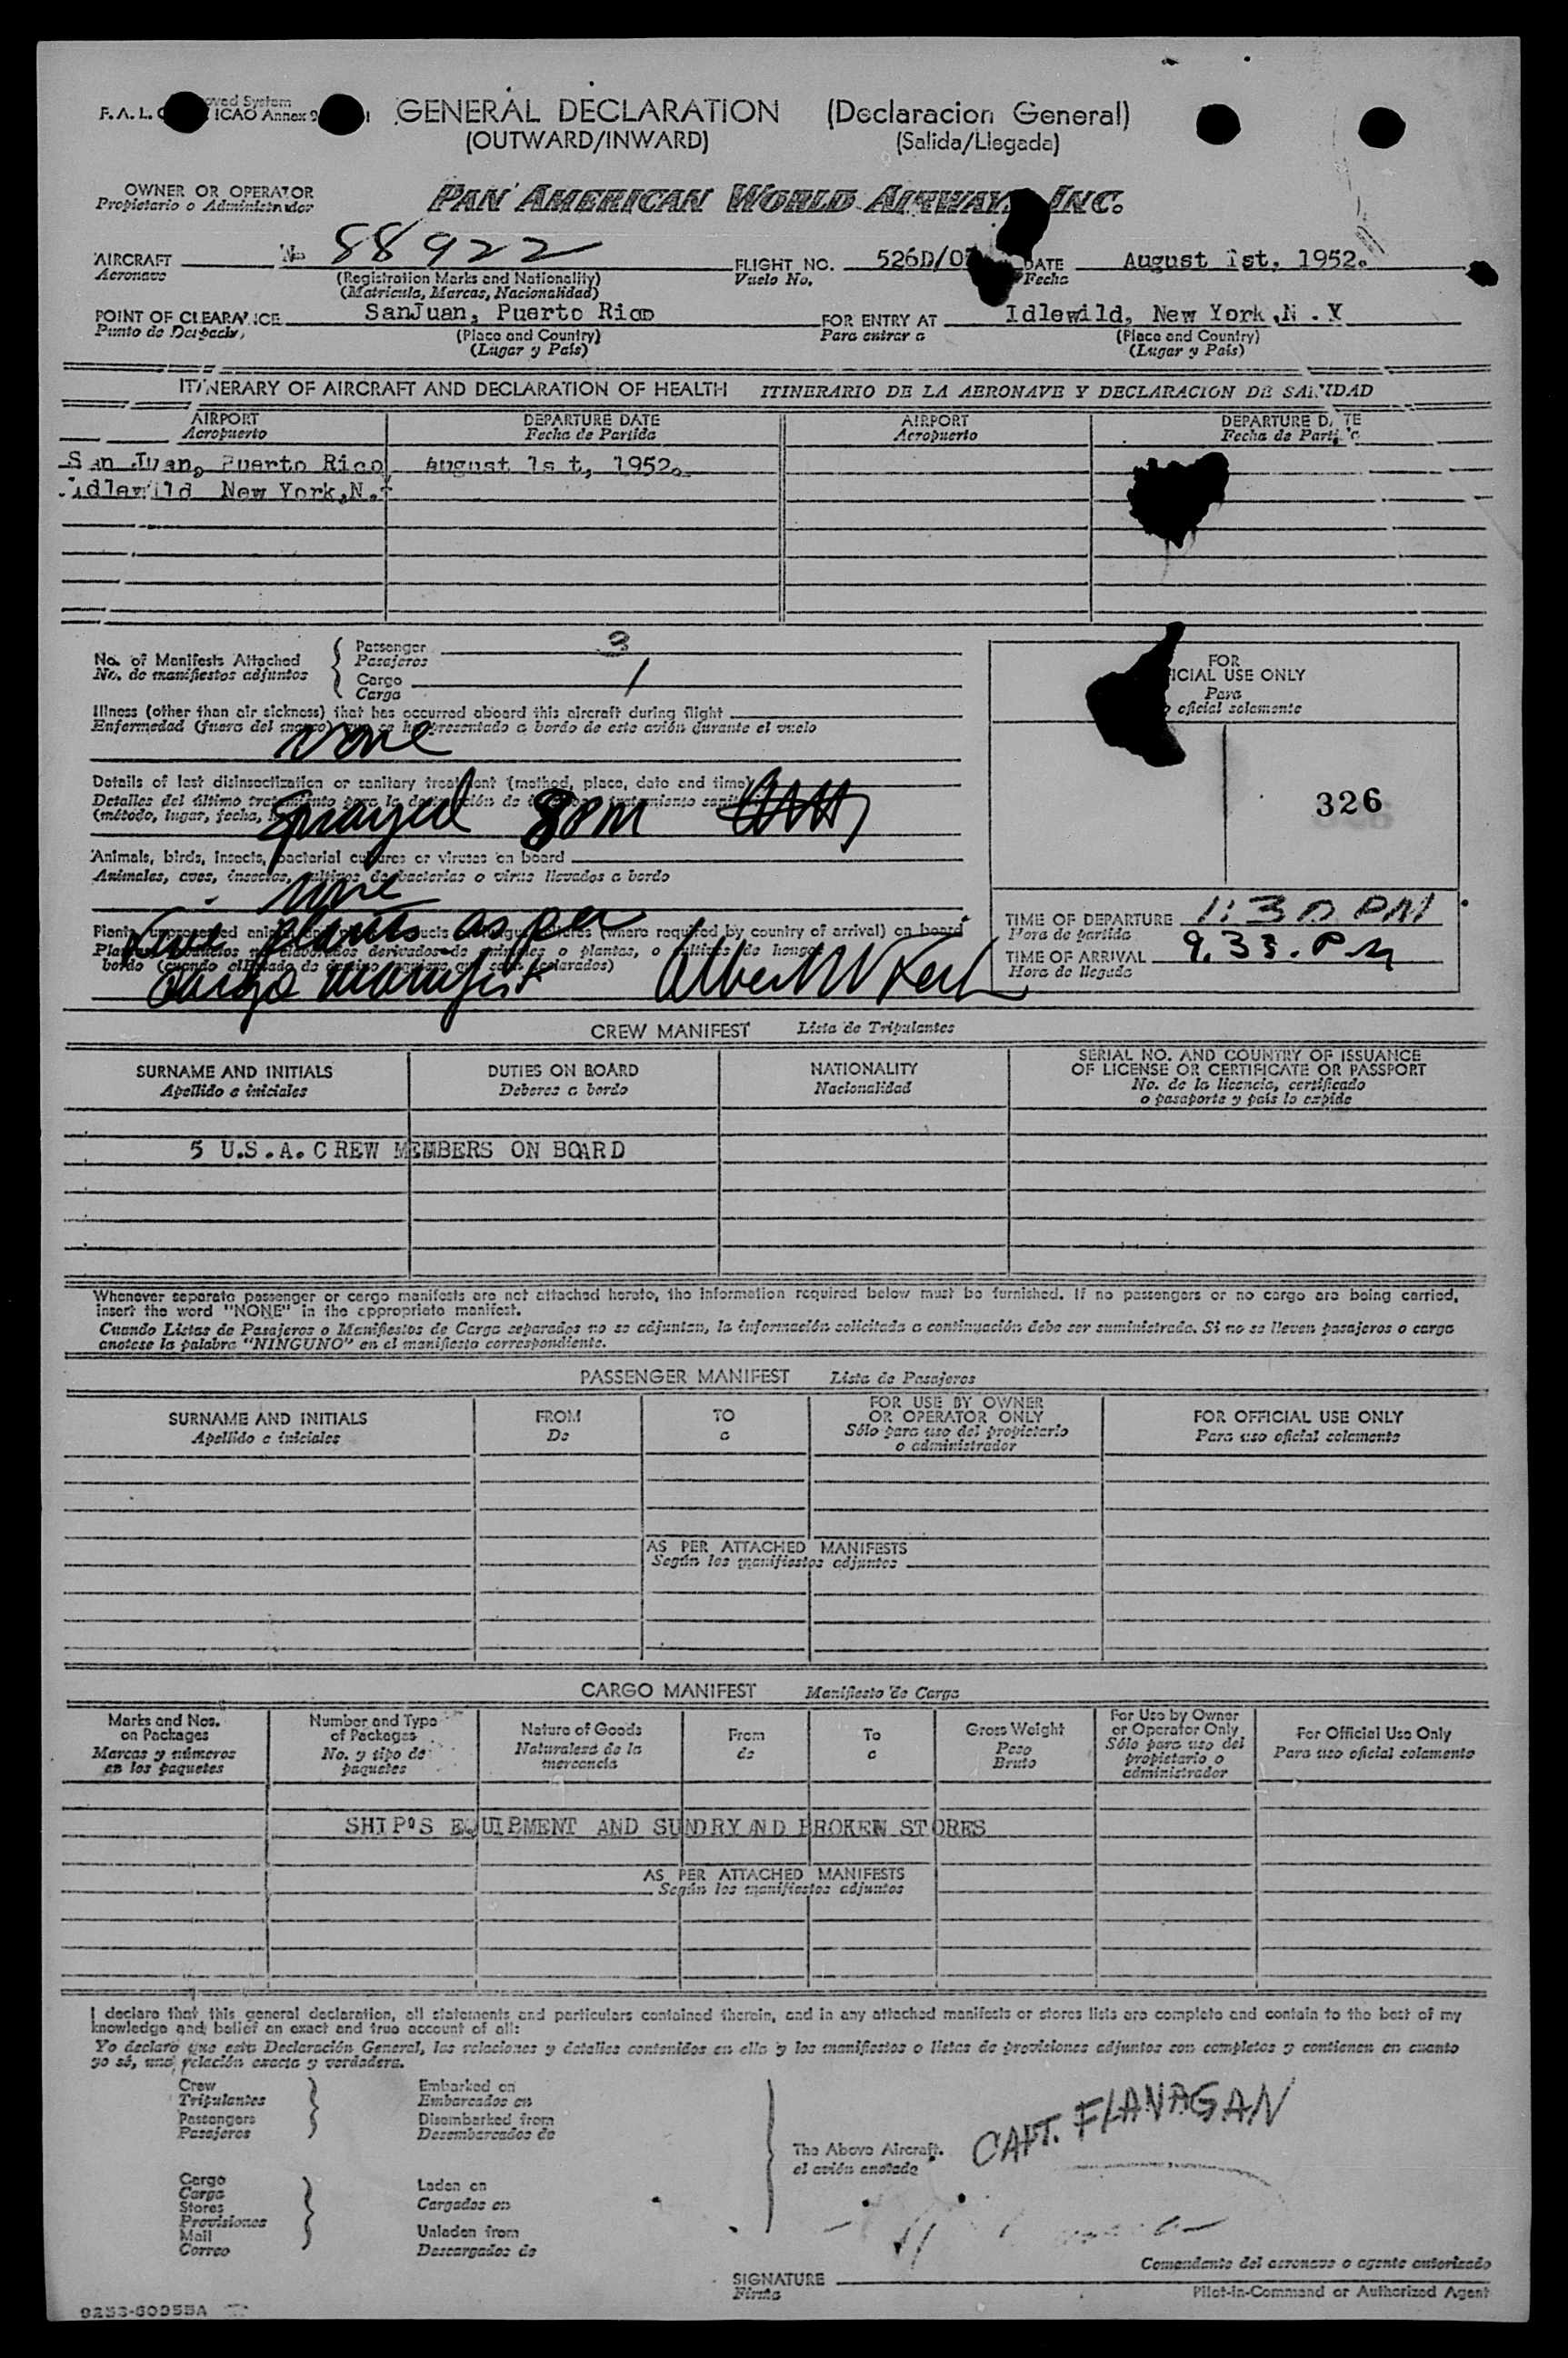 F. A. L. ICAO Annex 9
GENERAL DECLARATION (Declaracion General)
(OUTWARD/INWARD) (Salida/Llegada)
OWNER OR OPERATOR
Propietario o Administrador
PAN AMERICAN WORLD AIRWAYS INC.
AIRCRAFT No 88922 FLIGHT NO. 526D/ DATE August 1st, 1952.
Aeronave (Registration Marks and Nationality) Vuelo No. Fecha
(Matricula, Marcas, Nacionalidad)
POINT OF CLEARANCE SanJuan, Puerto Rico FOR ENTRY AT Idlewild, New York,N.Y
Punto de Despacho (Place and Country) Para entrar a (Place and Country)
(Lugar y País) (Lugar y País)
ITINERARY OF AIRCRAFT AND DECLARATION OF HEALTH ITINERARIO DE LA AERONAVE Y DECLARACION DE SANIDAD
AIRPORT DEPARTURE DATE AIRPORT DEPARTURE DATE
Aeropuerto Fecha de Partida Aeropuerto Fecha de Partida
San Juan, Puerto Rico August 1s t, 1952.
Idlewild New York,N.Y
No. of Manifests Attached
No. de manifiestos adjuntos
Passenger 3
Pasajeros
Cargo 1
Carga
FOR
ICIAL USE ONLY
Para
oficial solamente
Illness (other than air sickness) that has occurred aboard this aircraft during flight
Enfermedad (fuera del mareo) que se ha presentado a bordo de este avión durante el vuelo
None
Details of last disinsectization or sanitary treatment (method, place, date and time)
Detalles del último tratamiento para la
(método, lugar, fecha,
Sprayed
326
Animals, birds, insects, bacterial cultures or viruses on board
Animales, aves, insectos, cultivos de bacterias o virus llevados a bordo
None
TIME OF DEPARTURE 1:30 PM
Hora de partida
TIME OF ARRIVAL 9.33.PM
Hora de llegada
(where required by country of arrival) on board
derivados de animales o plantas, o cultivos de hongos
Live plants as per
cargo manifest
CREW MANIFEST Lista de Tripulantes
SURNAME AND INITIALS DUTIES ON BOARD NATIONALITY SERIAL NO. AND COUNTRY OF ISSUANCE
OF LICENSE OR CERTIFICATE OR PASSPORT
Apellido e iniciales Deberes a bordo Nacionalidad No. de la licencia, certificado
o pasaporte y país lo expide
5 U.S.A. CREW MEMBERS ON BOARD
Whenever separate passenger or cargo manifests are not attached hereto, the information required below must be furnished. If no passengers or no cargo are being carried,
insert the word "NONE" in the appropriate manifest.
Cuando Listas de Pasajeros o Manifiestos de Carga separados no se adjuntan, la información solicitada a continuación debe ser suministrada. Si no se lleven pasajeros o carga
anotese la palabra "NINGUNO" en el manifiesto correspondiente.
PASSENGER MANIFEST Lista de Pasajeros
SURNAME AND INITIALS FROM TO FOR USE BY OWNER
OR OPERATOR ONLY FOR OFFICIAL USE ONLY
Apellido e iniciales De a Sólo para uso del propietario
o administrador Para uso oficial solamente
AS PER ATTACHED MANIFESTS
Según los manifiestos adjuntos
CARGO MANIFEST Manifiesto de Carga
Marks and Nos.
on Packages
Marcas y números
en los paquetes
Number and Type
of Packages
No. y tipo de
paquetes
Nature of Goods
Naturaleza de la
mercancía
From
de
To
a
Gross Weight
Peso
Bruto
For Use by Owner
or Operator Only
Sólo para uso del
propietario o
administrador
For Official Use Only
Para uso oficial solamente
SHIP'S EQUIPMENT AND SUNDRY AND BROKEN STORES
AS PER ATTACHED MANIFESTS
Según los manifiestos adjuntos
I declare that this general declaration, all statements and particulars contained therein, and in any attached manifests or stores lists are complete and contain to the best of my
knowledge and belief an exact and true account of all:
Yo declaro que esta Declaración General, las relaciones y detalles contenidos en ella y los manifiestos o listas de provisiones adjuntos son completos y contienen en cuanto
yo sé, una relación exacta y verdadera.
Crew
Tripulantes
Passengers
Pasajeros
Embarked on
Embarcados en
Disembarked from
Desembarcados de
Cargo
Carga
Stores
Provisiones
Mail
Correo
Laden on
Cargados en
Unladen from
Descargados de
The Above Aircraft.
el avión anotado
CAPT. FLANAGAN
Comandante del aeronave o agente autorizado
SIGNATURE
Firma
Pilot-in-Command or Authorized Agent